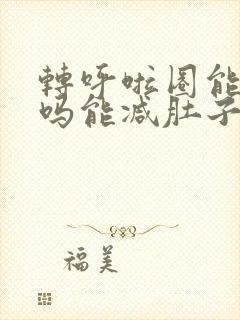 轉呼啦圈能
吗能减肚子
福美